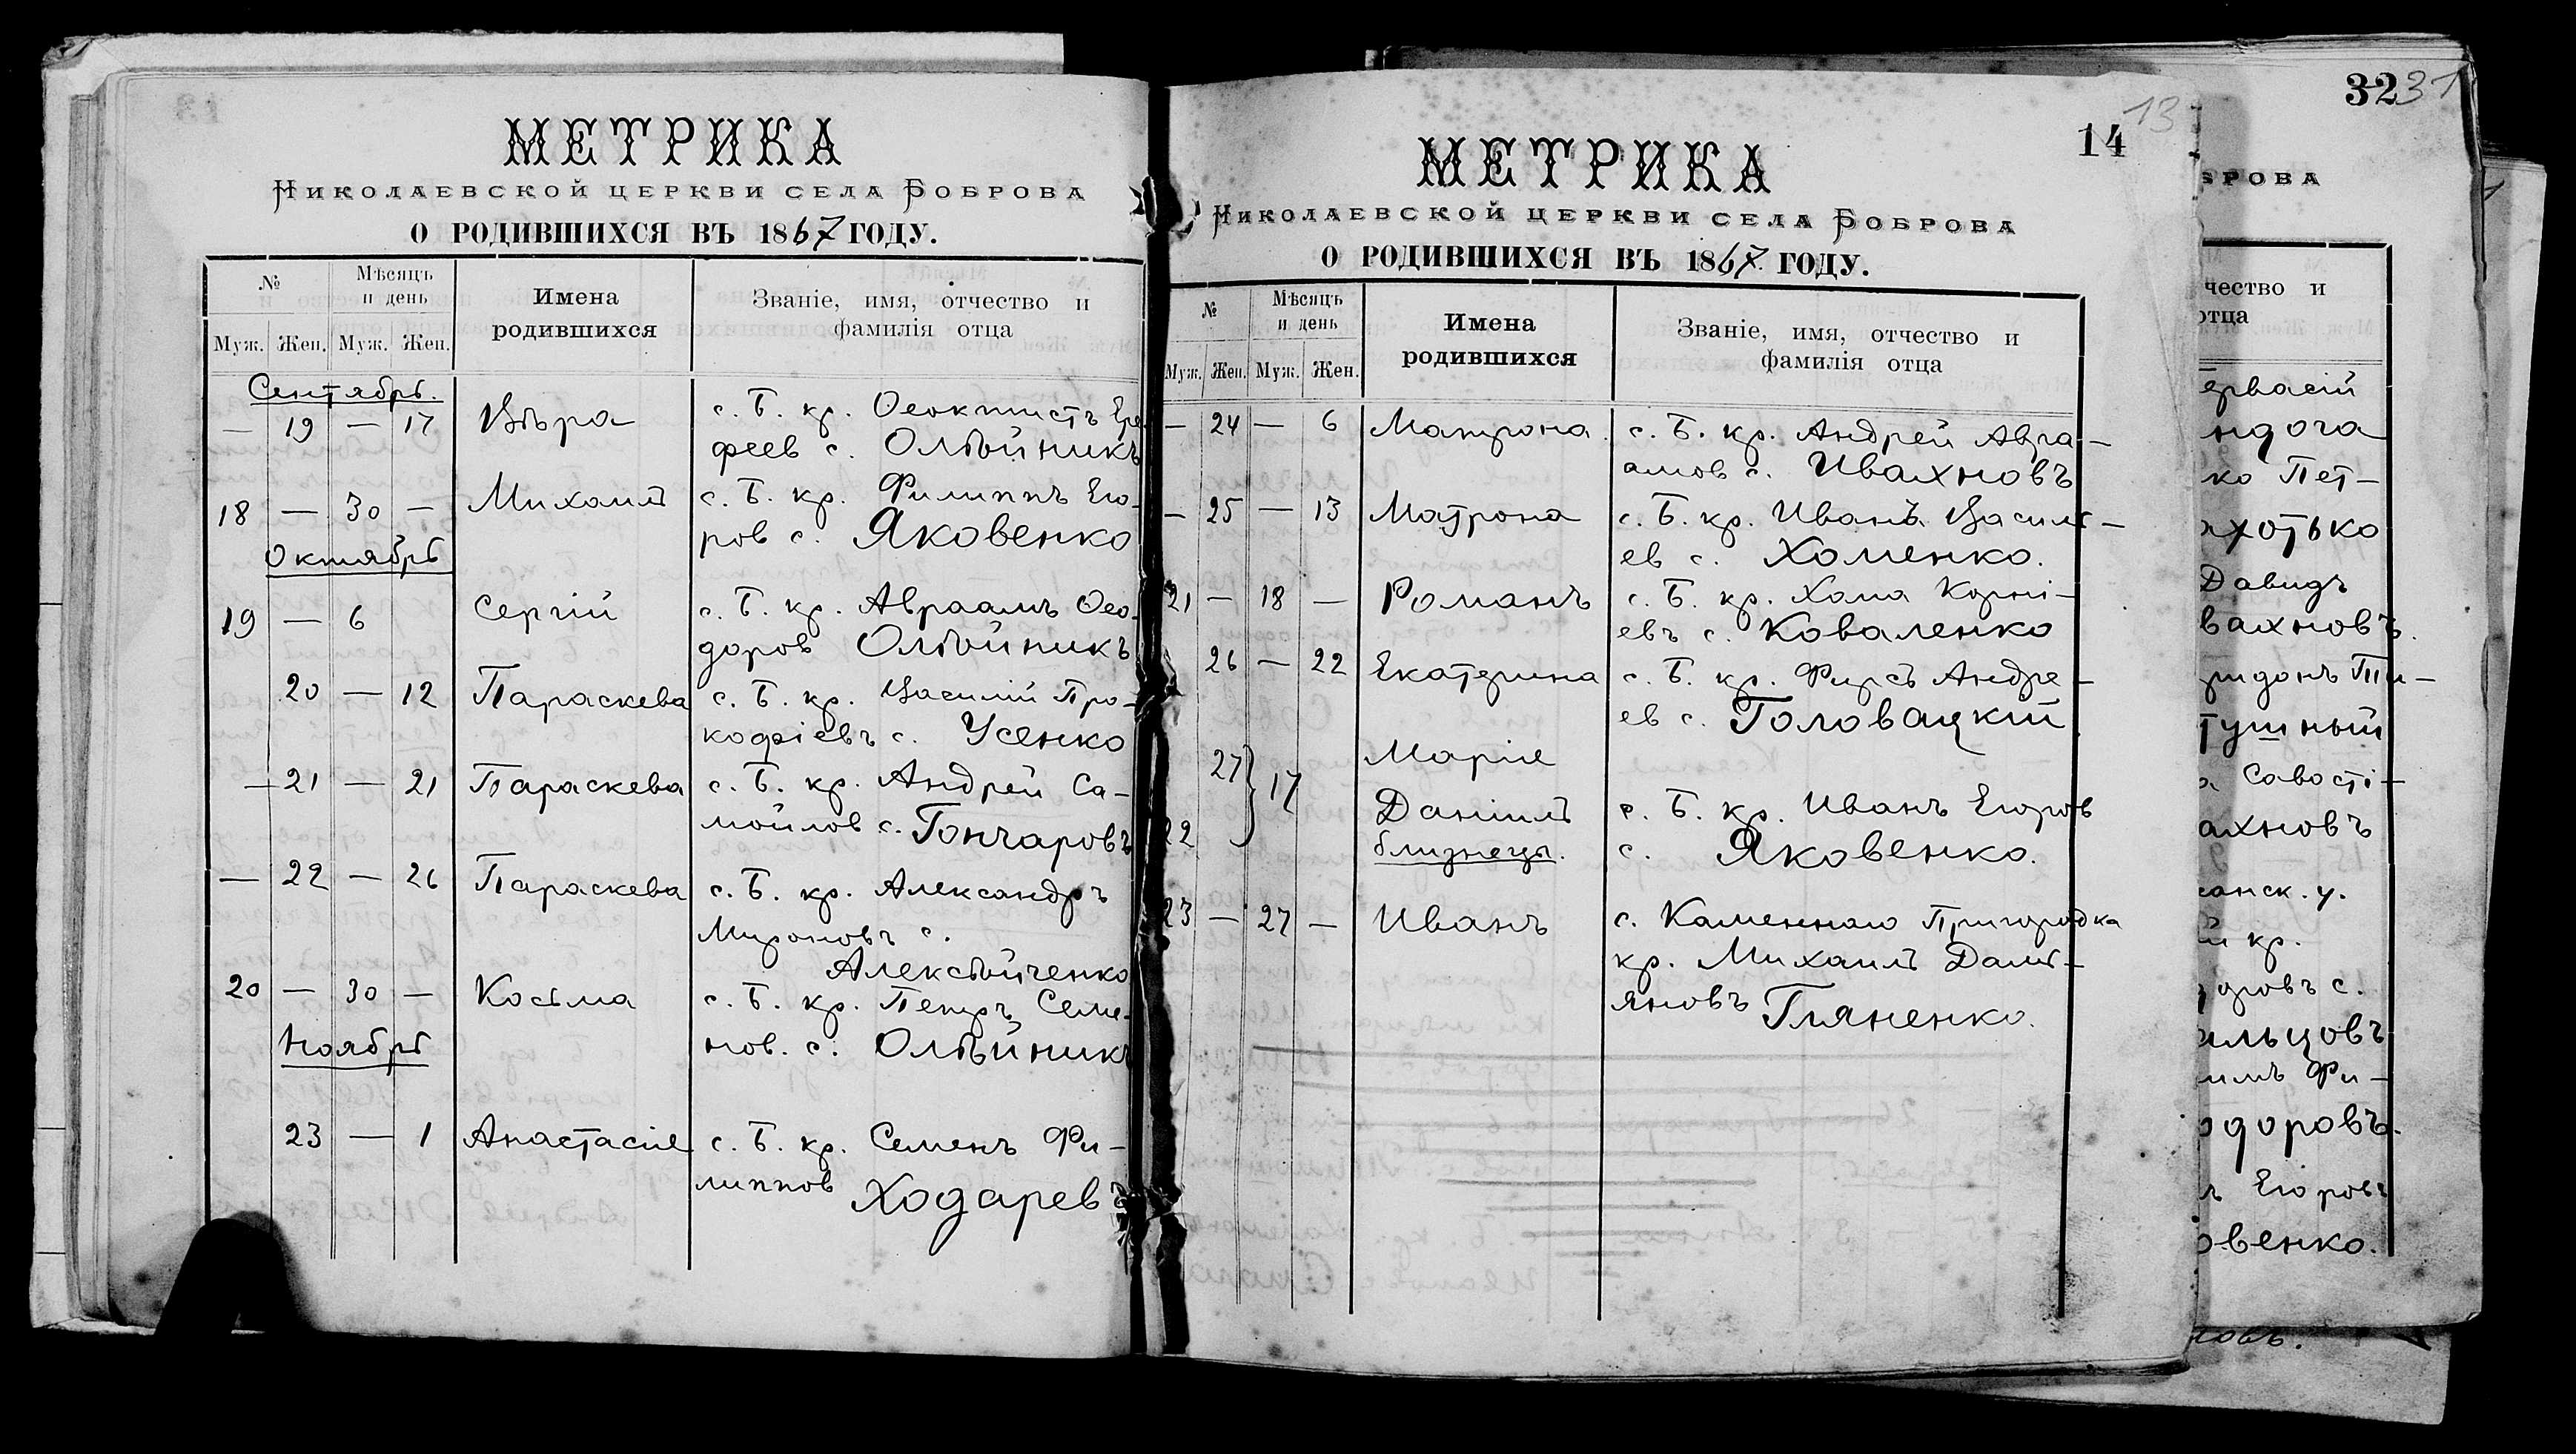 МЕТРИКА
Николаевской церкви села Боброва
О РОДИВШИХСЯ ВЪ 1867 ГОДУ.
№ Мѣсяцъ и день Имена родившихся Званіе, имя, отчество и фамилія отца
Муж. Жен. Муж. Жен.
Сентябрь.
— 19 — 17 Вѣра с. Б. кр. Ѳеоктистъ Ере
феев с. Олѣйникъ
18 — 30 — Михаилъ с. Б. кр. Филиппъ Его-
ров с. Яковенко
Октябрь
19 — 6 Сергій с. Б. кр. Авраамъ Ѳео-
доров Олѣйникъ
20 — 12 Параскева с. Б. кр. Василій Про-
кофіевъ с. Усенко
— 21 — 21 Параскева с. Б. кр. Андрей Са-
мойлов с. Гончаровъ
— 22 — 26 Параскева с. Б. кр. Александръ
Мироновъ с.
Алексѣйченко
20 — 30 — Косьма с. Б. кр. Петръ Семе-
нов. с. Олѣйникъ
Ноябрь
23 — 1 Анастасія с. Б. кр. Семенъ Фи-
липпов Ходаревъ
13
14
МЕТРИКА
Николаевской церкви села Боброва
О РОДИВШИХСЯ ВЪ 1867. ГОДУ.
№ Мѣсяцъ и день Имена родившихся Званіе, имя, отчество и фамилія отца
Муж. Жен. Муж. Жен.
— 24 — 6 Матрона с. Б. кр. Андрей Авра-
амов с. Ивахновъ
— 25 — 13 Матрона с. Б. кр. Иванъ Василь-
ев с. Хоменко.
21 — 18 — Романъ с. Б. кр. Хома Корні-
евъ с. Коваленко
26 — 22 Екатерина с. Б. кр. Фирсъ Андре-
ев с. Головацкій
27 } 17 Марія
22 Даніилъ с. Б. кр. Иванъ Егоров
близнецы. с. Яковенко.
23 — 27 — Иванъ с. Каменнаго Пригородка
кр. Михаилъ Дамі-
яновъ Гляненко.
32 31
БРОВА
чество и
отца
ервасій
ндога
ко Пет-
ахотько
Давидъ
вахновъ.
ридонъ Ти-
тушный
Савості-
ахновъ
санск. у.
й кр.
доровъ с.
альцовъ
имъ Фи-
одоровъ.
Егоровъ
овенко.
ловъ.